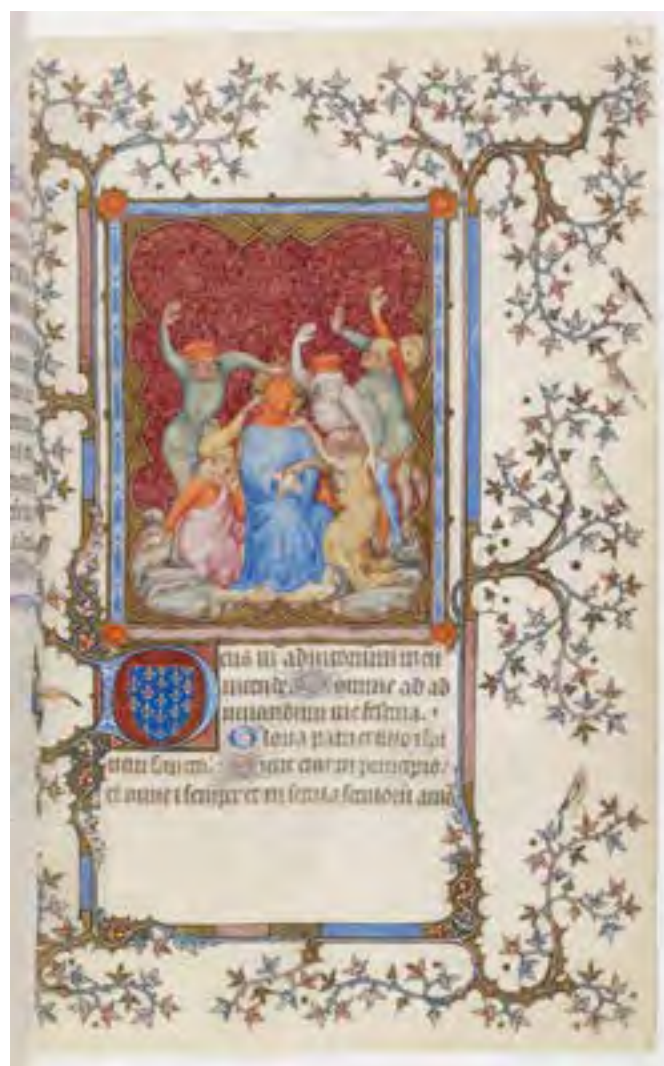 Deus in adiutorium meu
intende. Domine ad ad
iuuandum me festina.
Gloria patri et filio et spi
ritui sancto. Sicut erat in principio
et nunc et semper et in secula seculorum ame